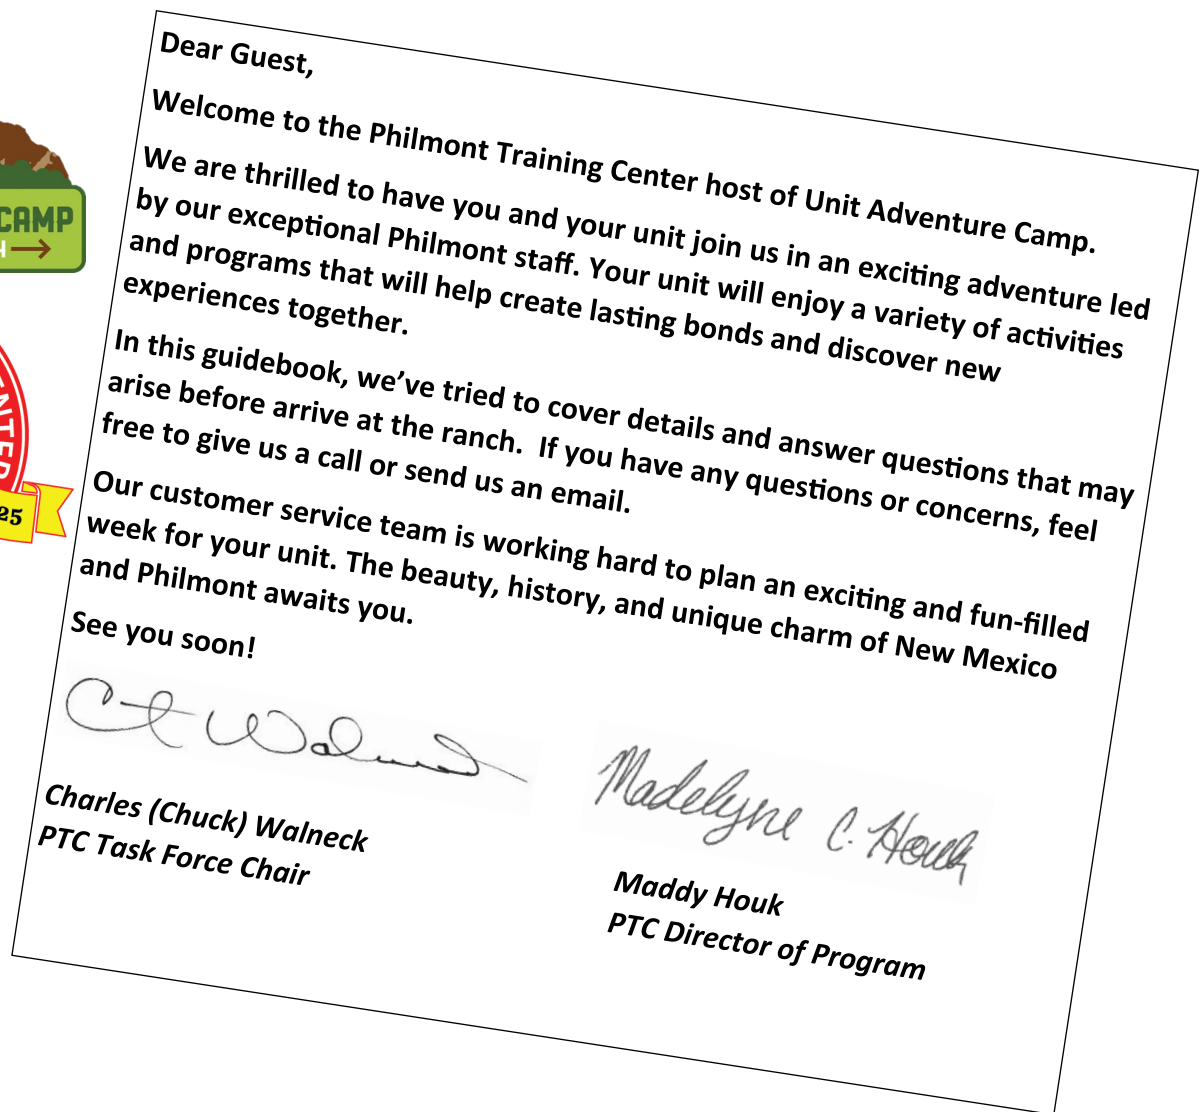 Dear Guest,
Welcome to the Philmont Training Center host of Unit Adventure Camp.
We are thrilled to have you and your unit join us in an exciting adventure led
by our exceptional Philmont staff. Your unit will enjoy a variety of activities
and programs that will help create lasting bonds and discover new
experiences together.
In this guidebook, we’ve tried to cover details and answer questions that may
arise before arrive at the ranch.  If you have any questions or concerns, feel
free to give us a call or send us an email.
Our customer service team is working hard to plan an exciting and fun-filled
week for your unit. The beauty, history, and unique charm of New Mexico
and Philmont awaits you.
See you soon!
Madelyne C. Houk
Charles (Chuck) Walneck
PTC Task Force Chair
Maddy Houk
PTC Director of Program
CAMP
25